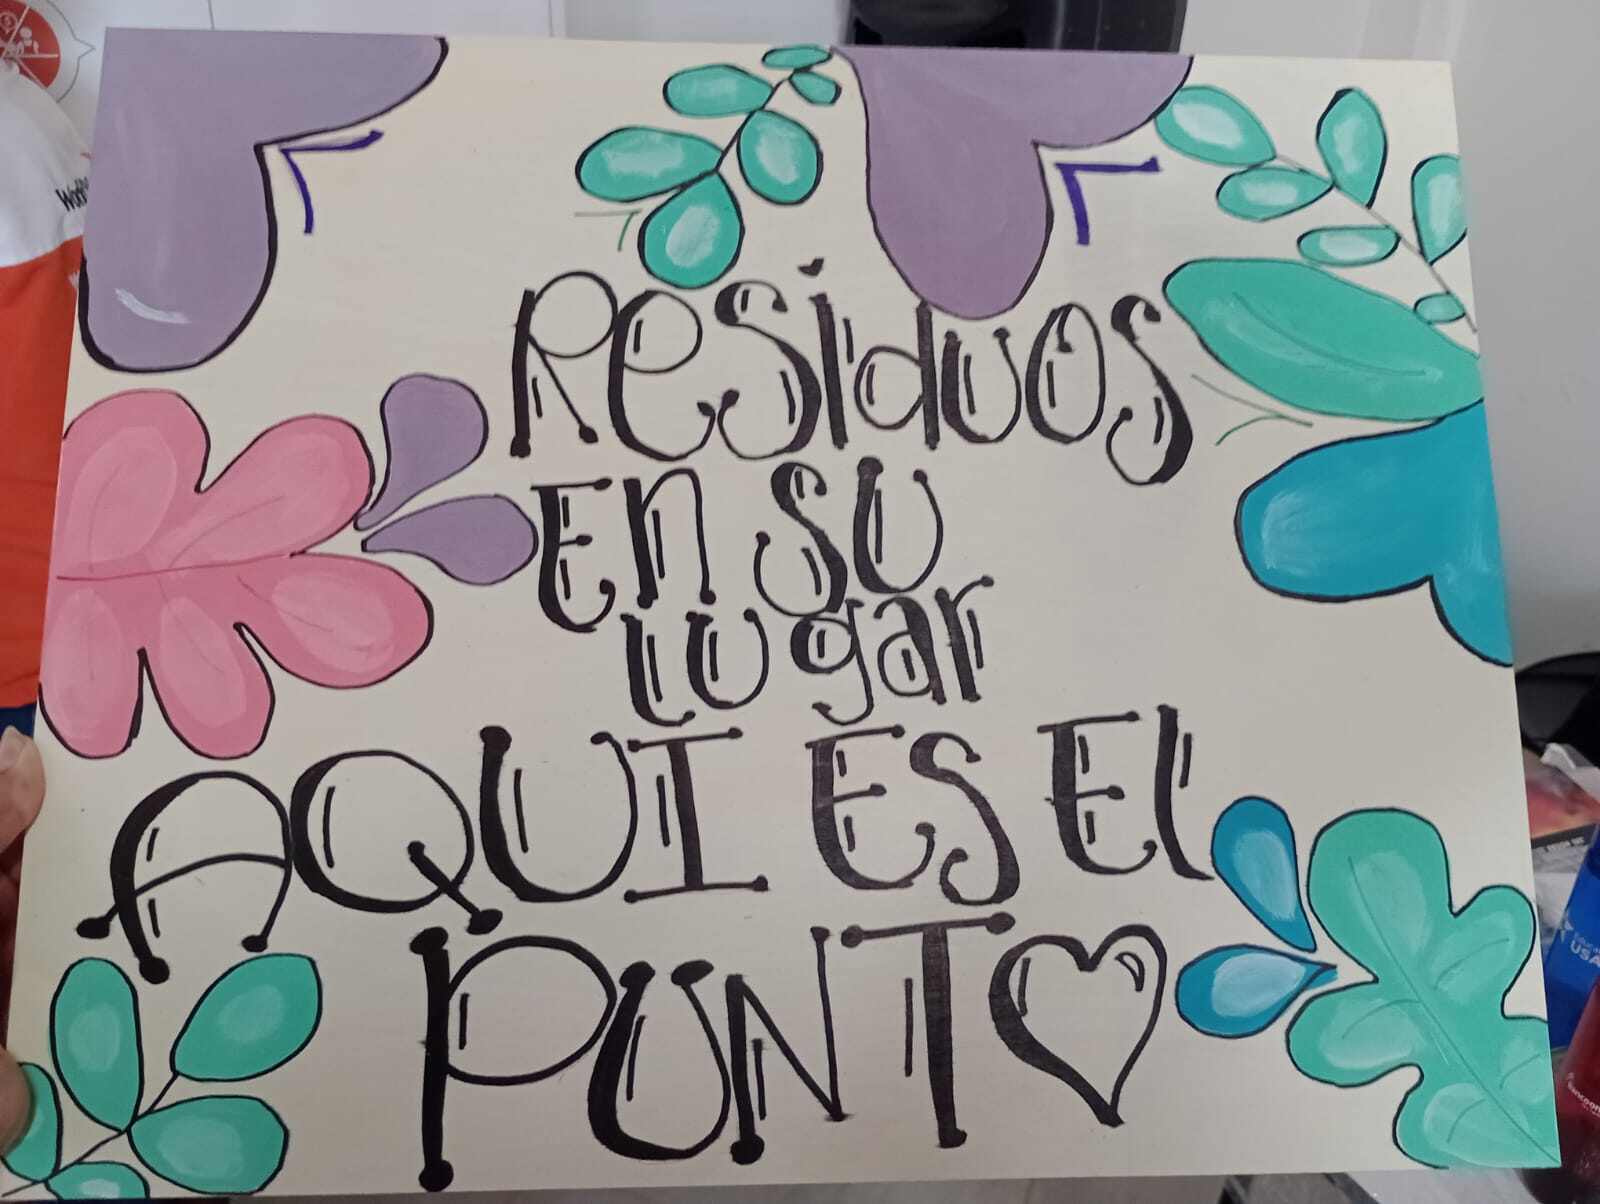 Residuos
En su
Lugar
AQUI ES El
PUNT♥